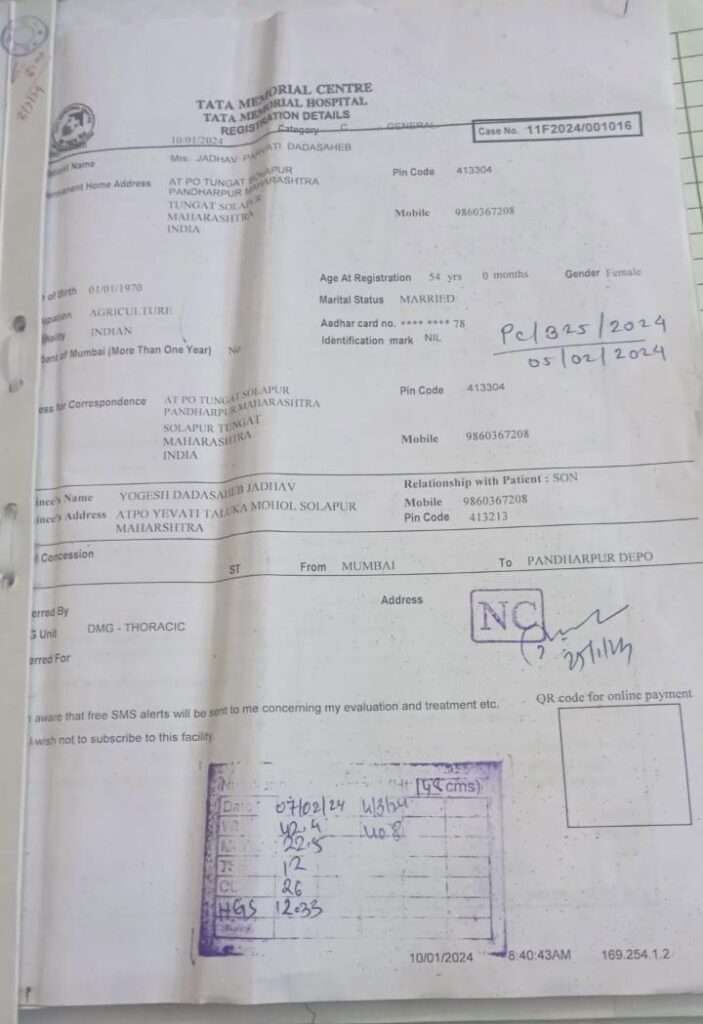 8/2/24
TATA MEMORIAL CENTRE
TATA MEMORIAL HOSPITAL
REGISTRATION DETAILS
10/01/2024 Category C GENERAL
Case No. 11F2024/001016
Name Mrs. JADHAV PARVATI DADASAHEB
Home Address AT PO TUNGAT SOLAPUR Pin Code 413304
PANDHARPUR MAHARASHTRA
TUNGAT SOLAPUR Mobile 9860367208
MAHARASHTRA
INDIA
Age At Registration 54 yrs 0 months Gender Female
of Birth 01/01/1970
Marital Status MARRIED
upation AGRICULTURE
Aadhar card no. **** **** 78
ality INDIAN
Identification mark NIL
Pc/325/2024
05/02/2024
dent of Mumbai (More Than One Year) No
ess for Correspondence AT PO TUNGAT SOLAPUR Pin Code 413304
PANDHARPUR MAHARASHTRA
SOLAPUR TUNGAT
MAHARASHTRA Mobile 9860367208
INDIA
inee's Name YOGESH DADASAHEB JADHAV Relationship with Patient : SON
inee's Address ATPO YEVATI TALUKA MOHOL SOLAPUR Mobile 9860367208
MAHARSHTRA Pin Code 413213
Concession ST From MUMBAI To PANDHARPUR DEPO
erred By Address
NC
G Unit DMG - THORACIC
erred For
aware that free SMS alerts will be sent to me concerning my evaluation and treatment etc.
QR code for online payment
I wish not to subscribe to this facility.
cms)
Date 07/02/24 4/3/24
42.4 40.8
22.5
12
26
HGS 12.33
10/01/2024 8:40:43AM 169.254.1.2